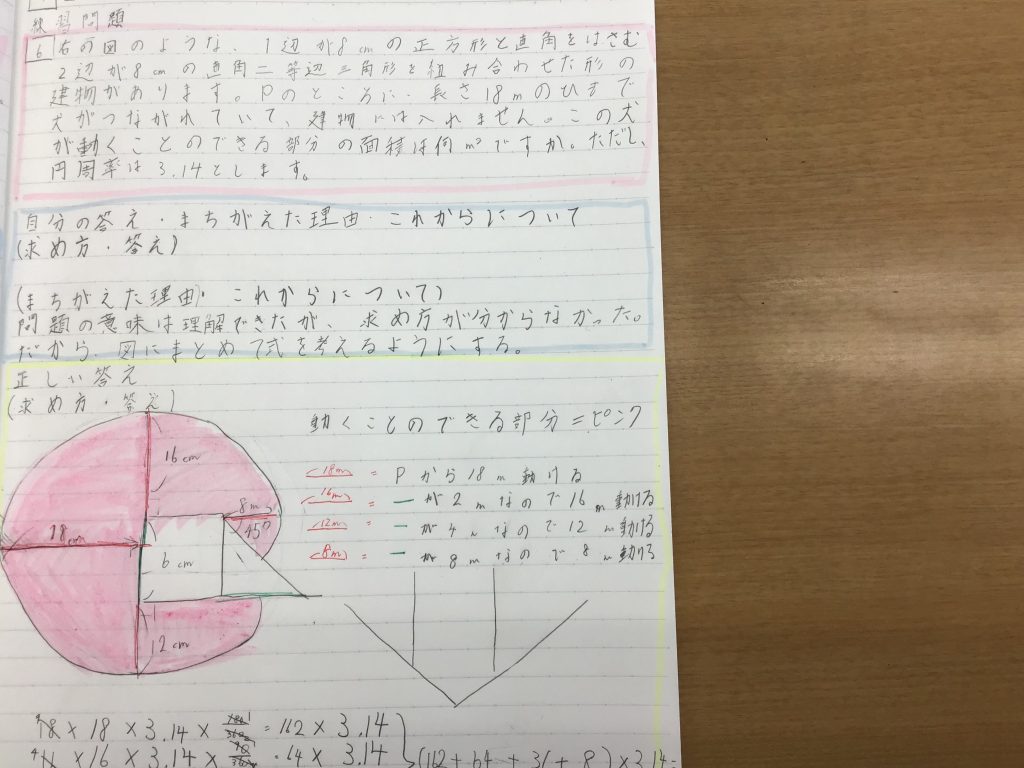 練習問題
6 右の図のような、1辺が8cmの正方形と直角をはさむ
2辺が8cmの直角二等辺三角形を組み合わせた形の
建物があります。Pのところに、長さ18mのひもで
犬がつながれていて、建物には入れません。この犬
が動くことのできる部分の面積は何m²ですか。ただし、
円周率は3.14とします。
自分の答え・まちがえた理由・これからについて
(求め方・答え)
(まちがえた理由)・これからについて)
問題の意味は理解できたが、求め方が分からなかった。
だから、図にまとめて式を考えるようにする。
正しい答え
(求め方・答え)
動くことのできる部分=ピンク
16cm
18m = Pから18m動ける
16m = ーが2mなので16m動ける
8m
12m = ーが4mなので12m動ける
18cm
45°
6cm
8m = ーが8mなので8m動ける
12cm
18 × 18 × 3.14 × = 162 × 3.14
16 × 16 × 3.14 × = 64 × 3.14
(162 + 64 + 36 + 8) × 3.14 =